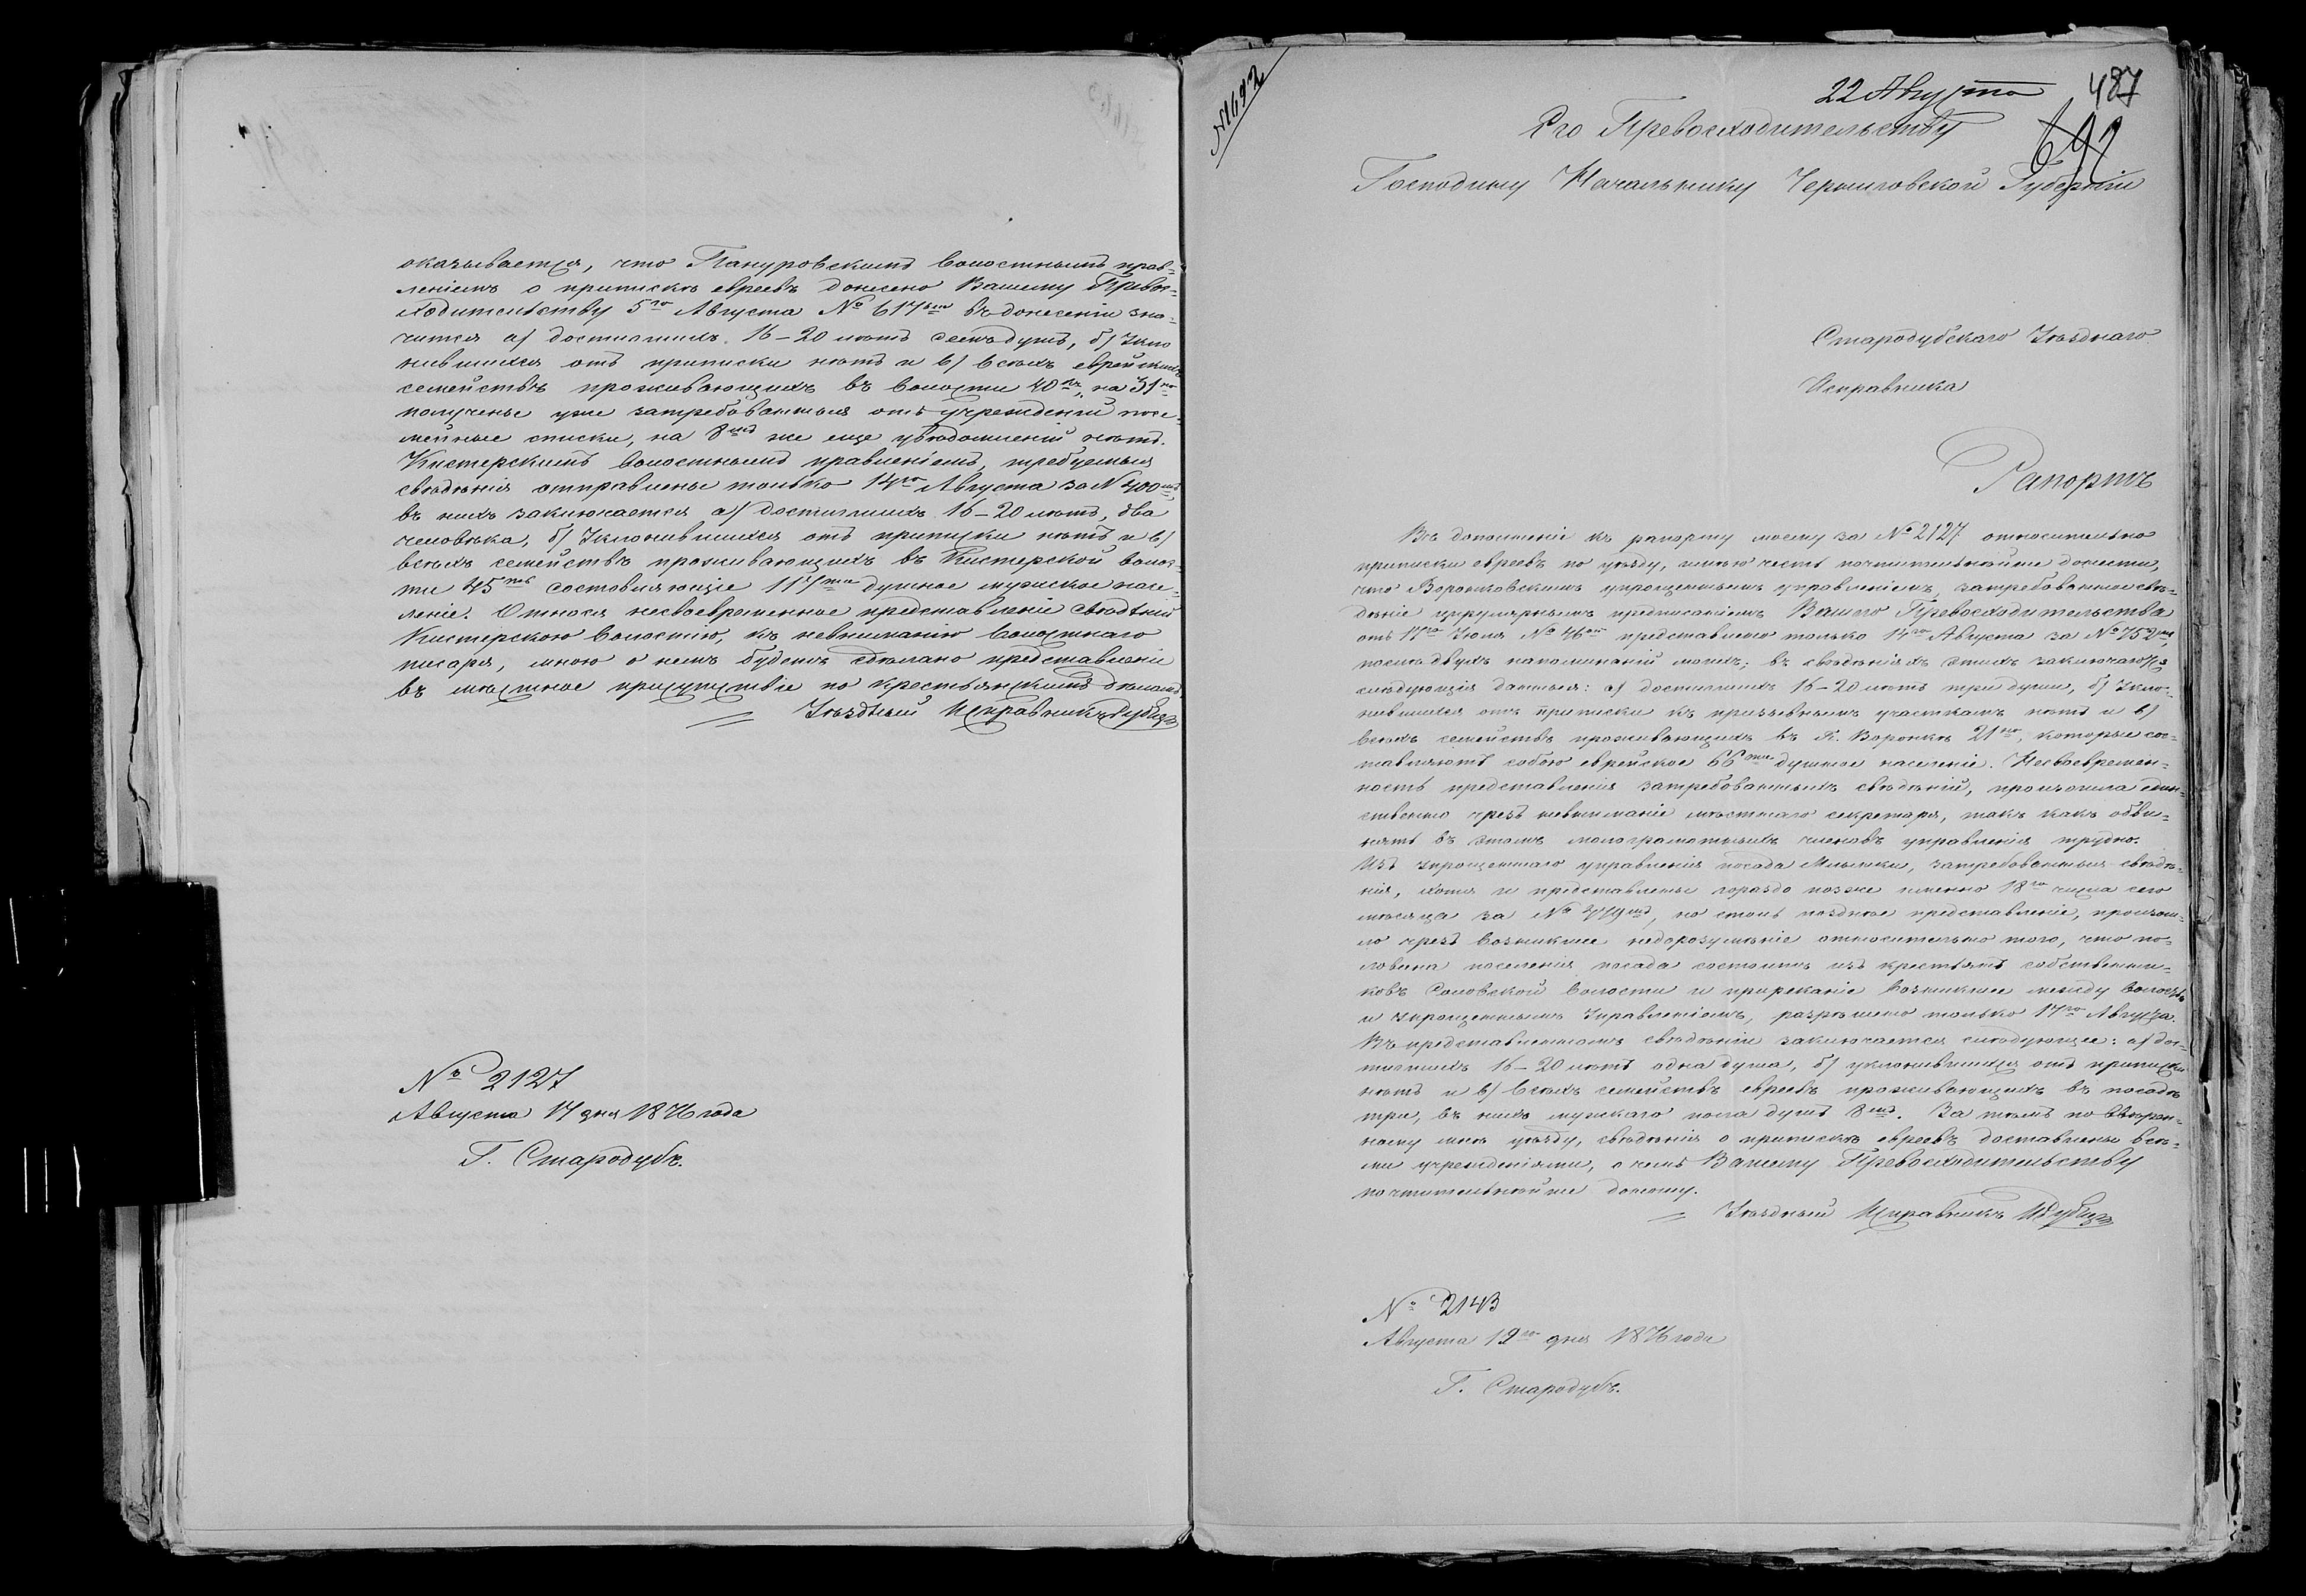 оказывается, что Пануровскимъ волостнымъ прав=
леніемъ о припискѣ евреевъ донесено Вашему Превос=
ходительству 5го Августа № 617мъ въ донесеніи зна=
чится а) достигшихъ 16–20 лѣтъ семь душъ, б) Укло
нившихся отъ приписки нѣтъ и в) всѣхъ еврейскихъ
семействъ проживающихъ въ волости 40къ, на 31но
получены уже затребованныя отъ учрежденій посе=
мейные списки, на 8мъ же еще увѣдомленій нѣтъ.
Кистерскимъ волостнымъ правленіемъ, требуемыя
свѣдѣнія отправлены только 14го Августа за № 400мъ,
въ нихъ заключается а) достигшихъ 16–20 лѣтъ, два
человѣка, б) Уклонившихся отъ приписки нѣтъ и в)
всѣхъ семействъ проживающихъ въ Кистерской волос=
ти 45ть составляющіе 117ти душное мужское насе=
леніе. Относя несвоевременное представленіе свѣдѣній
Кистерскою волостію, къ невниманію волостнаго
писаря, мною о немъ будетъ сдѣлано представленіе
въ мѣстное присутствіе по крестьянскимъ дѣламъ
Уѣздный Исправникъ
№ 2127
Августа 17 дня 1876 года
Г. Стародубъ.
№ 692
22 Августа
487
692
Его Превосходительству
Господину Начальнику Черниговской Губерніи
Стародубскаго Уѣзднаго
Исправника
Рапортъ
Въ дополненіе къ рапорту моему за № 2127 относительно
приписки евреевъ по уѣзду, имѣю честь почтительнѣйше донести,
что Воронковскимъ упрощеннымъ управленіемъ, затребованное свѣ=
дѣніе циркулярнымъ предписаніемъ Вашего Превосходительства
отъ 17го Іюля № 46ой представлено только 14го Августа за № 752мъ,
послѣ двухъ напоминаній моихъ; въ свѣдѣніяхъ этихъ заключаются
слѣдующія данныя: а) достигшихъ 16–20 лѣтъ три души, б) Укло=
нившихся отъ приписки къ призывнымъ участкамъ нѣтъ и в)
всѣхъ семействъ проживающихъ въ п. Воронкѣ 21но, которые сос=
тавляютъ собою еврейское 66ти душное населеніе. Несвоевремен=
ность представленія затребованныхъ свѣдѣній, произошла един=
ственно чрезъ невниманіе мѣстнаго секретаря, такъ какъ обви=
нять въ этомъ малограмотныхъ членовъ управленія трудно.
Изъ упрощеннаго управленія посада Млынки, затребованныя свѣдѣ=
нія, хотя и представлены гораздо позже именно 18го числа сего
мѣсяца за № 779мъ, но столь позднее представленіе, произош=
ло чрезъ возникшее недоразумѣніе относительно того, что по=
ловина населенія посада состоитъ изъ крестьянъ собственни=
ковъ Соловской волости и пререканіе возникшее между волостью
и упрощеннымъ Управленіемъ, разрѣшено только 17го Августа.
Въ представленномъ свѣдѣніи заключается слѣдующее: а) дос=
тигшихъ 16–20 лѣтъ одна душа, б) уклонившихся отъ приписки
нѣтъ и в) всѣхъ семействъ евреевъ проживающихъ въ посадѣ
три, въ нихъ мужскаго пола душъ 8мъ. За тѣмъ по ввѣрен=
ному мнѣ уѣзду, свѣдѣнія о припискѣ евреевъ доставлены всѣ=
ми учрежденіями, о чемъ Вашему Превосходительству
почтительнѣйше доношу.
Уѣздный Исправникъ
№ 2143
Августа 19го дня 1876 года
Г. Стародубъ.